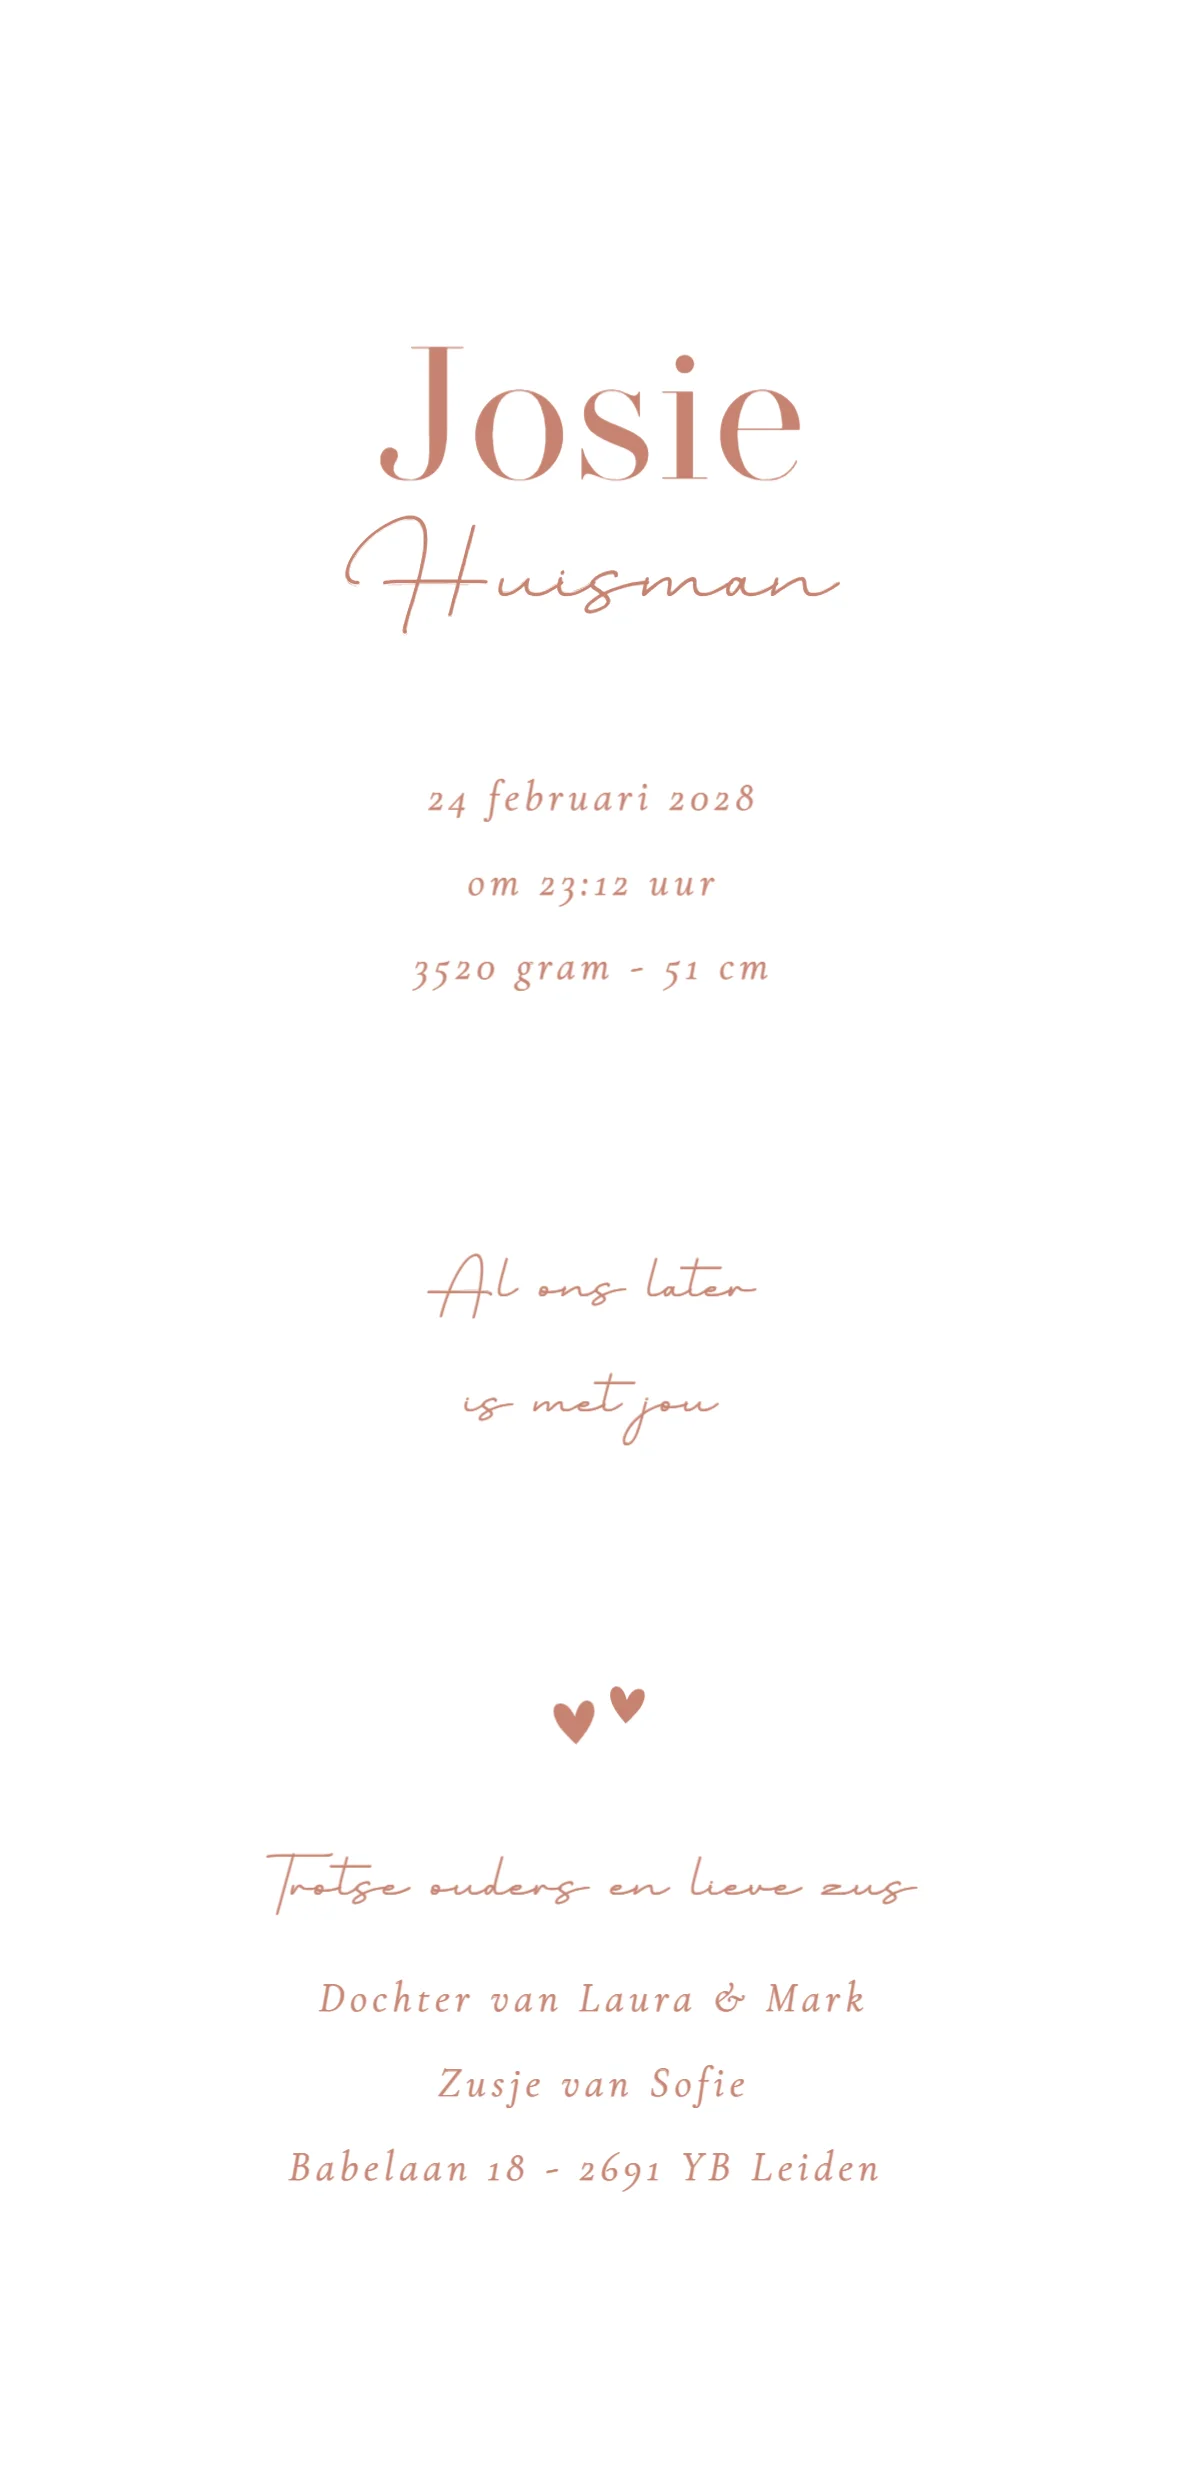 Josie
Huisman
24 februari 2028
om 23:12 uur
3520 gram - 51 cm
Al ons later
is met jou
Trotse ouders en lieve zus
Dochter van Laura & Mark
Zusje van Sofie
Babelaan 18 - 2691 YB Leiden